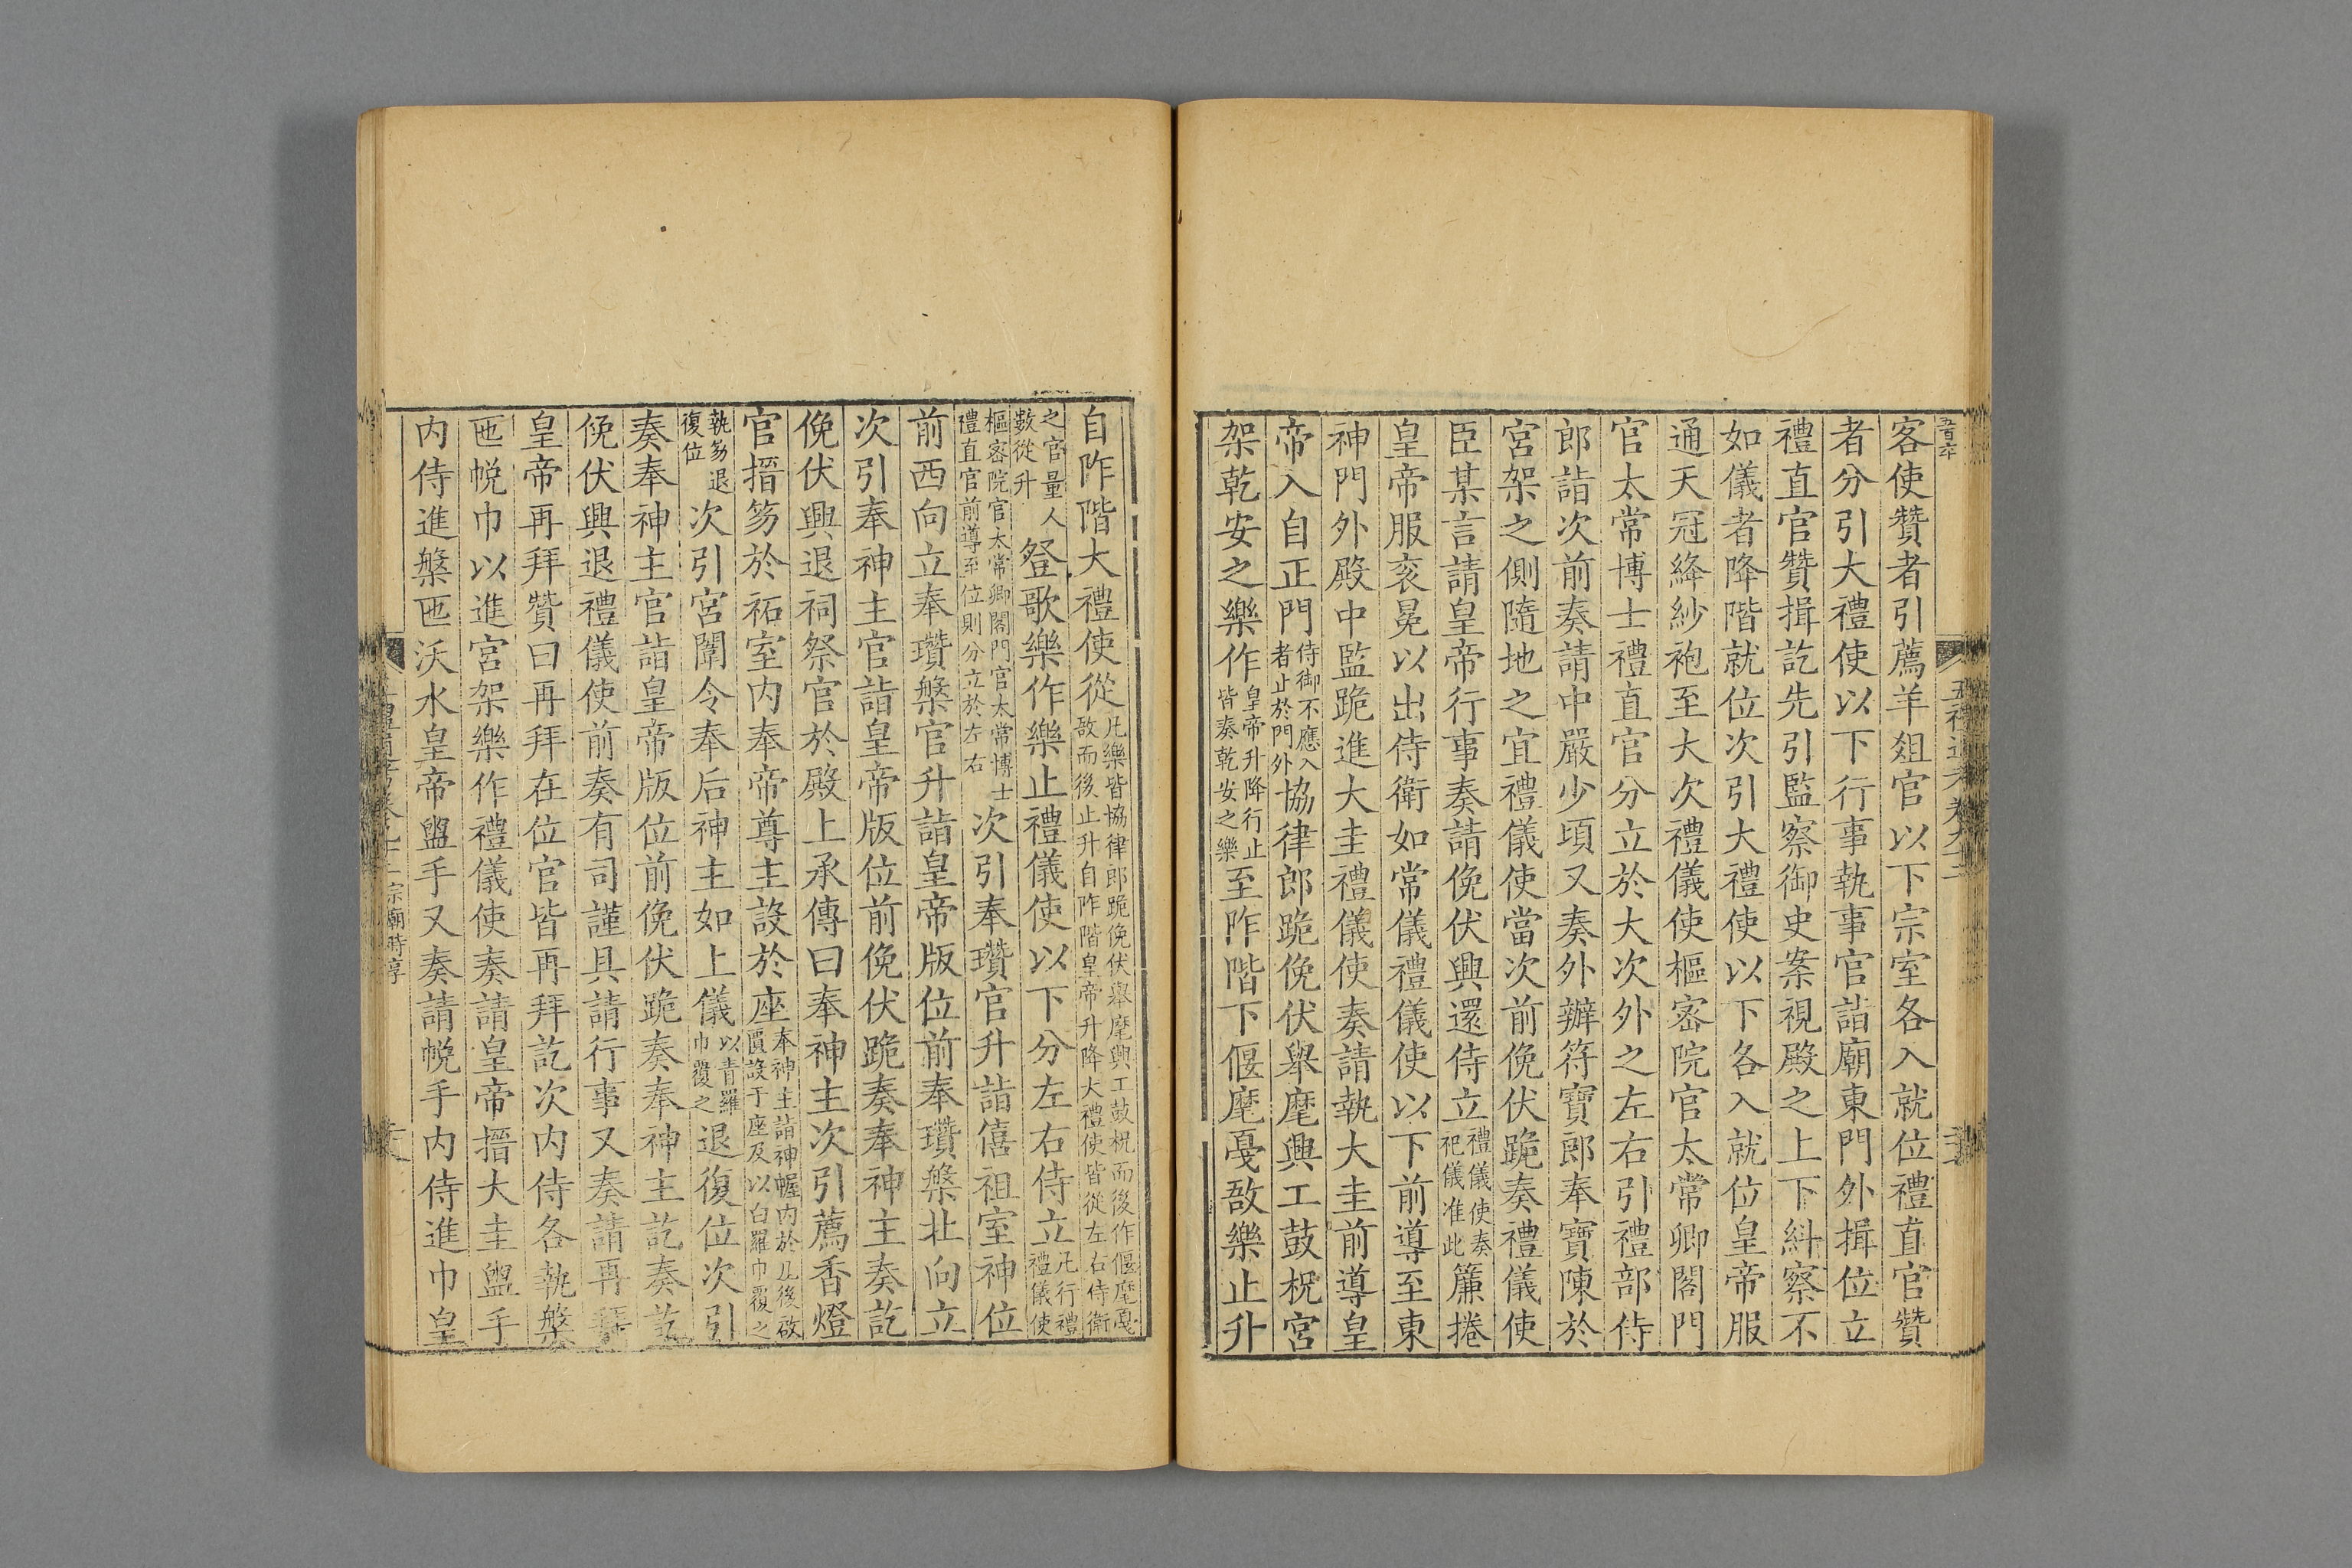 客使贊者引薦羊俎官以下宗室各入就位禮直官贊
者分引大禮使以下行事執事官詣廟東門外揖位立
禮直官贊揖訖先引監察御史案視殿之上下糾察不
如儀者降階就位次引大禮使以下各入就位皇帝服
通天冠絳紗袍至大次禮儀使樞密院官太常卿閤門
官太常博士禮直官分立於大次外之左右引禮部侍
郎詣次前奏請中嚴少頃又奏外辦符寶郎奉寶陳於
宮架之側隨地之宜禮儀使當次前俛伏跪奏禮儀使
臣某言請皇帝行事奏請俛伏興還侍立禮儀使奏祀儀准此簾捲
皇帝服衮冕以出侍衛如常儀禮儀使以下前導至東
神門外殿中監跪進大圭禮儀使奏請執大圭前導皇
帝入自正門侍御不應入者止於門外協律郎跪俛伏舉麾興工鼓柷宮
架乾安之樂作皇帝升降行止皆奏乾安之樂至阼階下偃麾戛敔樂止升
自阼階大禮使從凡樂皆協律郎跪俛伏舉麾興工鼓柷而後作偃麾戛敔而後止升自阼階皇帝升降大禮使皆從左右侍衛
之官量人數從升登歌樂作樂止禮儀使以下分左右侍立凡行禮禮儀使
樞密院官太常卿閤門官太常博士禮直官前導至位則分立於左右次引奉瓚官升詣僖祖室神位
前西向立奉瓚槃官升詣皇帝版位前奉瓚槃北向立
次引奉神主官詣皇帝版位前俛伏跪奏奉神主奏訖
俛伏興退祠祭官於殿上承傳曰奉神主次引薦香燈
官搢笏於祏室内奉帝尊主設於座奉神主詣神幄内於几後啟匱設于座及以白羅巾覆之
執笏退復位次引宮闈令奉后神主如上儀以青羅巾覆之退復位次引
奏奉神主官詣皇帝版位前俛伏跪奏奉神主訖奏訖
俛伏興退禮儀使前奏有司謹具請行事又奏請再拜
皇帝再拜贊曰再拜在位官皆再拜訖次内侍各執槃
匜帨巾以進宮架樂作禮儀使奏請皇帝搢大圭盥手
内侍進槃匜沃水皇帝盥手又奏請帨手内侍進巾皇
宗廟時享